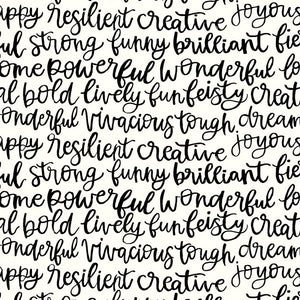 appy resilient creative joyous
ful strong funny brilliant fie
ome powerful wonderful lo
al bold lively fun feisty creat
onderful vivacious tough, dream
appy resilient creative joyous
ful strong funny brilliant fie
ome powerful wonderful lo
al bold lively fun feisty creat
onderful vivacious tough, dream
appy resilient creative joyous